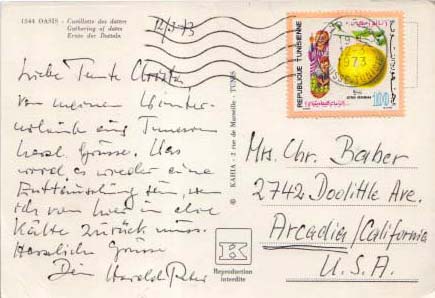 1544 OASIS - Cueillette des dattes
Gathering of dates
Ernte der Datteln
12/3-73
Liebe Tante Christa,
von meinem Winter-
urlaub aus Tunesien
herzl. Grüsse. Das
wird es wieder eine
Enttäuschung sein, wenn
ich von hier in die
Kälte zurück muss.
Herzliche Grüsse
Dein Harald Peter
© KAHIA - 3 rue de Marseille - TUNIS
K
Reproduction
interdite
REPUBLIQUE TUNISIENNE
1973
100
Mrs. Chr. Baber
2742 Doolittle Ave.
Arcadia/California
U.S.A.